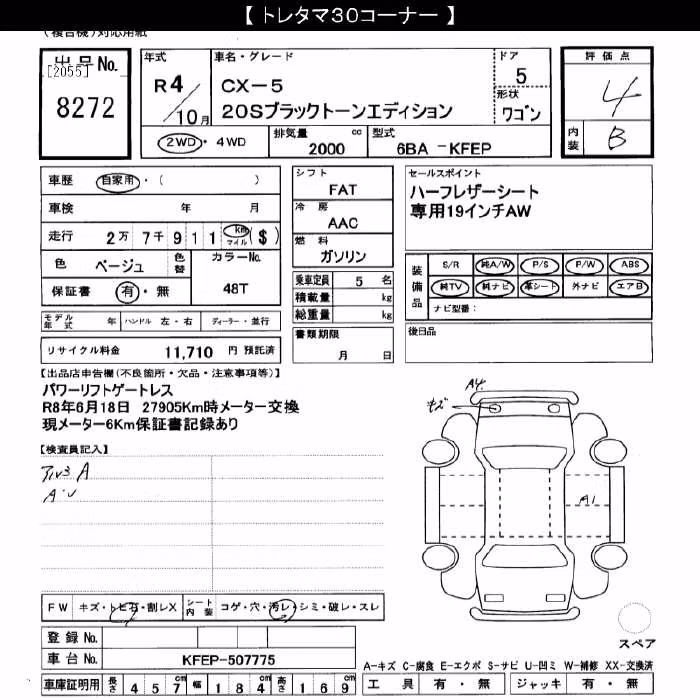 【 トレタマ30コーナー 】
(複合機)対応用紙
出品No.
[2055]
8272
年式
R4/10月
車名・グレード
CX-5
20Sブラックトーンエディション
ドア
5
形状
ワゴン
2WD・4WD
排気量 2000 cc
型式 6BA -KFEP
評価点
4
内装 B
車歴 自家用・( )
車検 年 月
走行 2万 7千 9 1 1 km マイル ($)
色 ベージュ 色替
カラーNo.
48T
保証書 有・無
シフト
FAT
冷房
AAC
燃料
ガソリン
乗車定員 5 名
積載量 kg
総重量 kg
書類期限
月 日
セールスポイント
ハーフレザーシート
専用19インチAW
装備品
S/R 純A/W P/S P/W ABS
純TV 純ナビ 革シート 外ナビ エアB
ナビ型番:
後日品
モデル年式 年 ハンドル 左・右 ディーラー・並行
リサイクル料金 11,710 円 預託済
【出品店申告欄(不良箇所・欠品・注意事項等)】
パワーリフトゲートレス
R8年6月18日 27905Km時メーター交換
現メーター6Km保証書記録あり
【検査員記入】
A
A・U
A4
キズ
A1
FW キズ・トビ石・割レX
シート内装 コゲ・穴・汚レ・シミ・破レ・スレ
登録No.
車台No. KFEP-507775
車庫証明用 長さ 4 5 7 cm 幅 1 8 4 cm 高さ 1 6 9 cm
スペア
A-キズ C-腐食 E-エクボ S-サビ U-凹ミ W-補修 XX-交換済
工具 有・無 ジャッキ 有・無